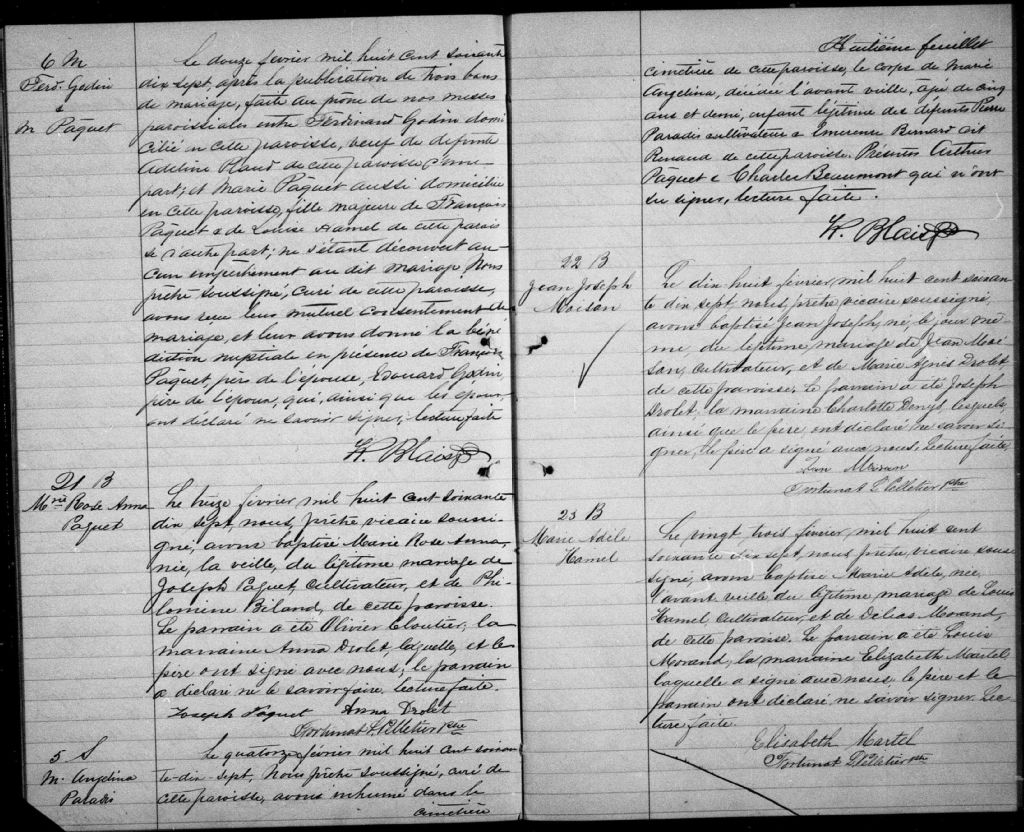 6 M
Ferd. Godin
&
M Pâquet
Le douze février mil huit cent soixante
dix sept, après la publication de trois bans
de mariage, faite au prône de nos messes
paroissiales entre Ferdinand Godin domi
cilié en cette paroisse, veuf de défunte
Adeline de cette paroisse d'une
part; et Marie Pâquet aussi domiciliée
en cette paroisse, fille majeure de François
Pâquet & de Louise Hamel de cette parois
se d'autre part; ne s'étant découvert au-
cun empêchement au dit mariage Nous
prêtre soussigné, curé de cette paroisse,
avons reçu leur mutuel consentement de
mariage, et leur avons donné la béné
diction nuptiale en présence de François
Pâquet, père de l'épouse, Edouard Godin,
père de l'époux, qui, ainsi que les époux,
ont déclaré ne savoir signer; lecture faite
F. Blais Ptre
21 B
Mrie Rose Anna
Paquet
Le treize février mil huit cent soixante
dix sept, nous, prêtre vicaire soussi-
gné, avons baptisé Marie Rose Anna,
née, la veille, du légitime mariage de
Joseph Paquet, Cultivateur, et de Phi-
lomène Béland, de cette paroisse.
Le parrain a été Olivier Cloutier, la
marraine Anna Drolet, laquelle, et le
père ont signé avec nous; le parrain
a déclaré ne le savoir faire. Lecture faite.
Joseph Paquet Anna Drolet
Fortunat L. Pelletier Ptre
5 S
M. Angelina
Paradis
Le quatorze février mil huit cent soixan
te-dix-sept, Nous prêtre soussigné, curé de
cette paroisse, avons inhumé dans le
cimetière
Huitième feuillet
cimetière de cette paroisse, le corps de Marie
Angelina, décédée l'avant veille, âgée de cinq
ans et demi, enfant légitime des défunts Pierre
Paradis cultivateur & Emerence Bernard dit
Renaud de cette paroisse. Présents Arthur
Paquet & Charles Beaumont qui n'ont
su signer, lecture faite.
F. Blais Ptre
22 B
Jean Joseph
Moisan
Le dix huit février, mil huit cent soixan
te dix sept, nous, prêtre vicaire soussigné,
avons baptisé Jean Joseph, né, le jour mê-
me, du légitime mariage de Jean Moi-
san, Cultivateur, et de Marie Agnès Drolet
de cette paroisse. Le parrain a été Joseph
Drolet, la marraine Charlotte Denys, lesquels,
ainsi que le père, ont déclaré ne savoir si-
gner, le père a signé avec nous, Lecture faite,
Jean Moisan
Fortunat L. Pelletier Ptre
23 B
Marie Adèle
Hamel
Le vingt trois février, mil huit cent
soixante dix sept, nous prêtre, vicaire sous
signé, avons baptisé Marie Adèle, née,
l'avant veille du légitime mariage de Louis
Hamel Cultivateur, et de Morand,
de cette paroisse. Le parrain a été Louis
Morand, la marraine Elizabeth Martel
laquelle a signé avec nous. le père et le
parrain ont déclaré ne savoir signer. Lec-
ture faite.
Elisabeth Martel
Fortunat L Pelletier Ptre